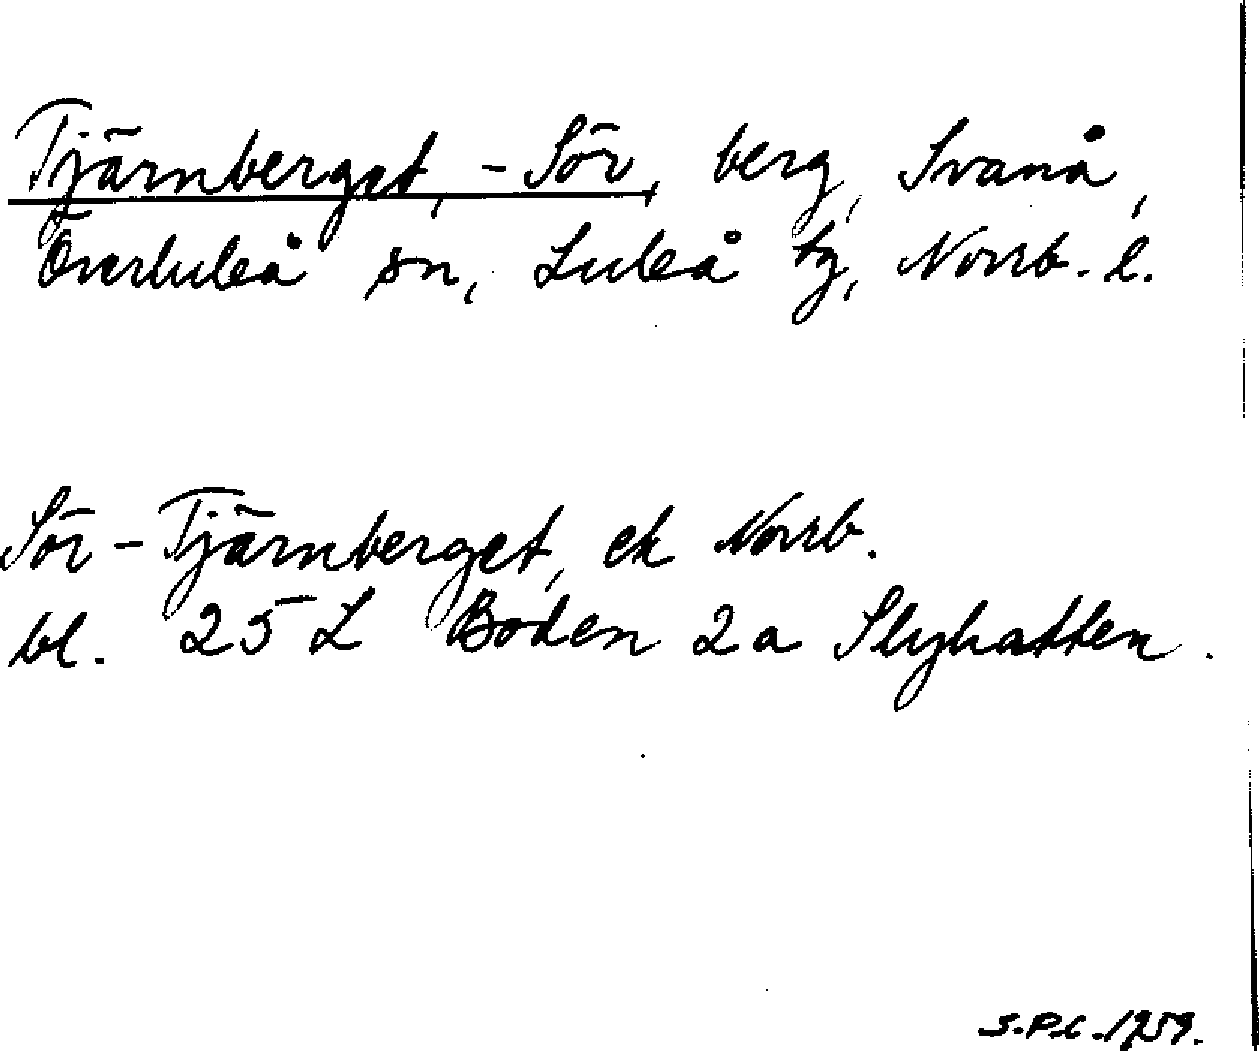 Tjärnberget, -Sör, berg, Svanå,
Överluleå sn, Luleå tg, Norrb. l.
Sör-Tjärnberget, ek Norrb.
bl. 25 L Boden 2a Slyhatten.
S.P.C. 1959.